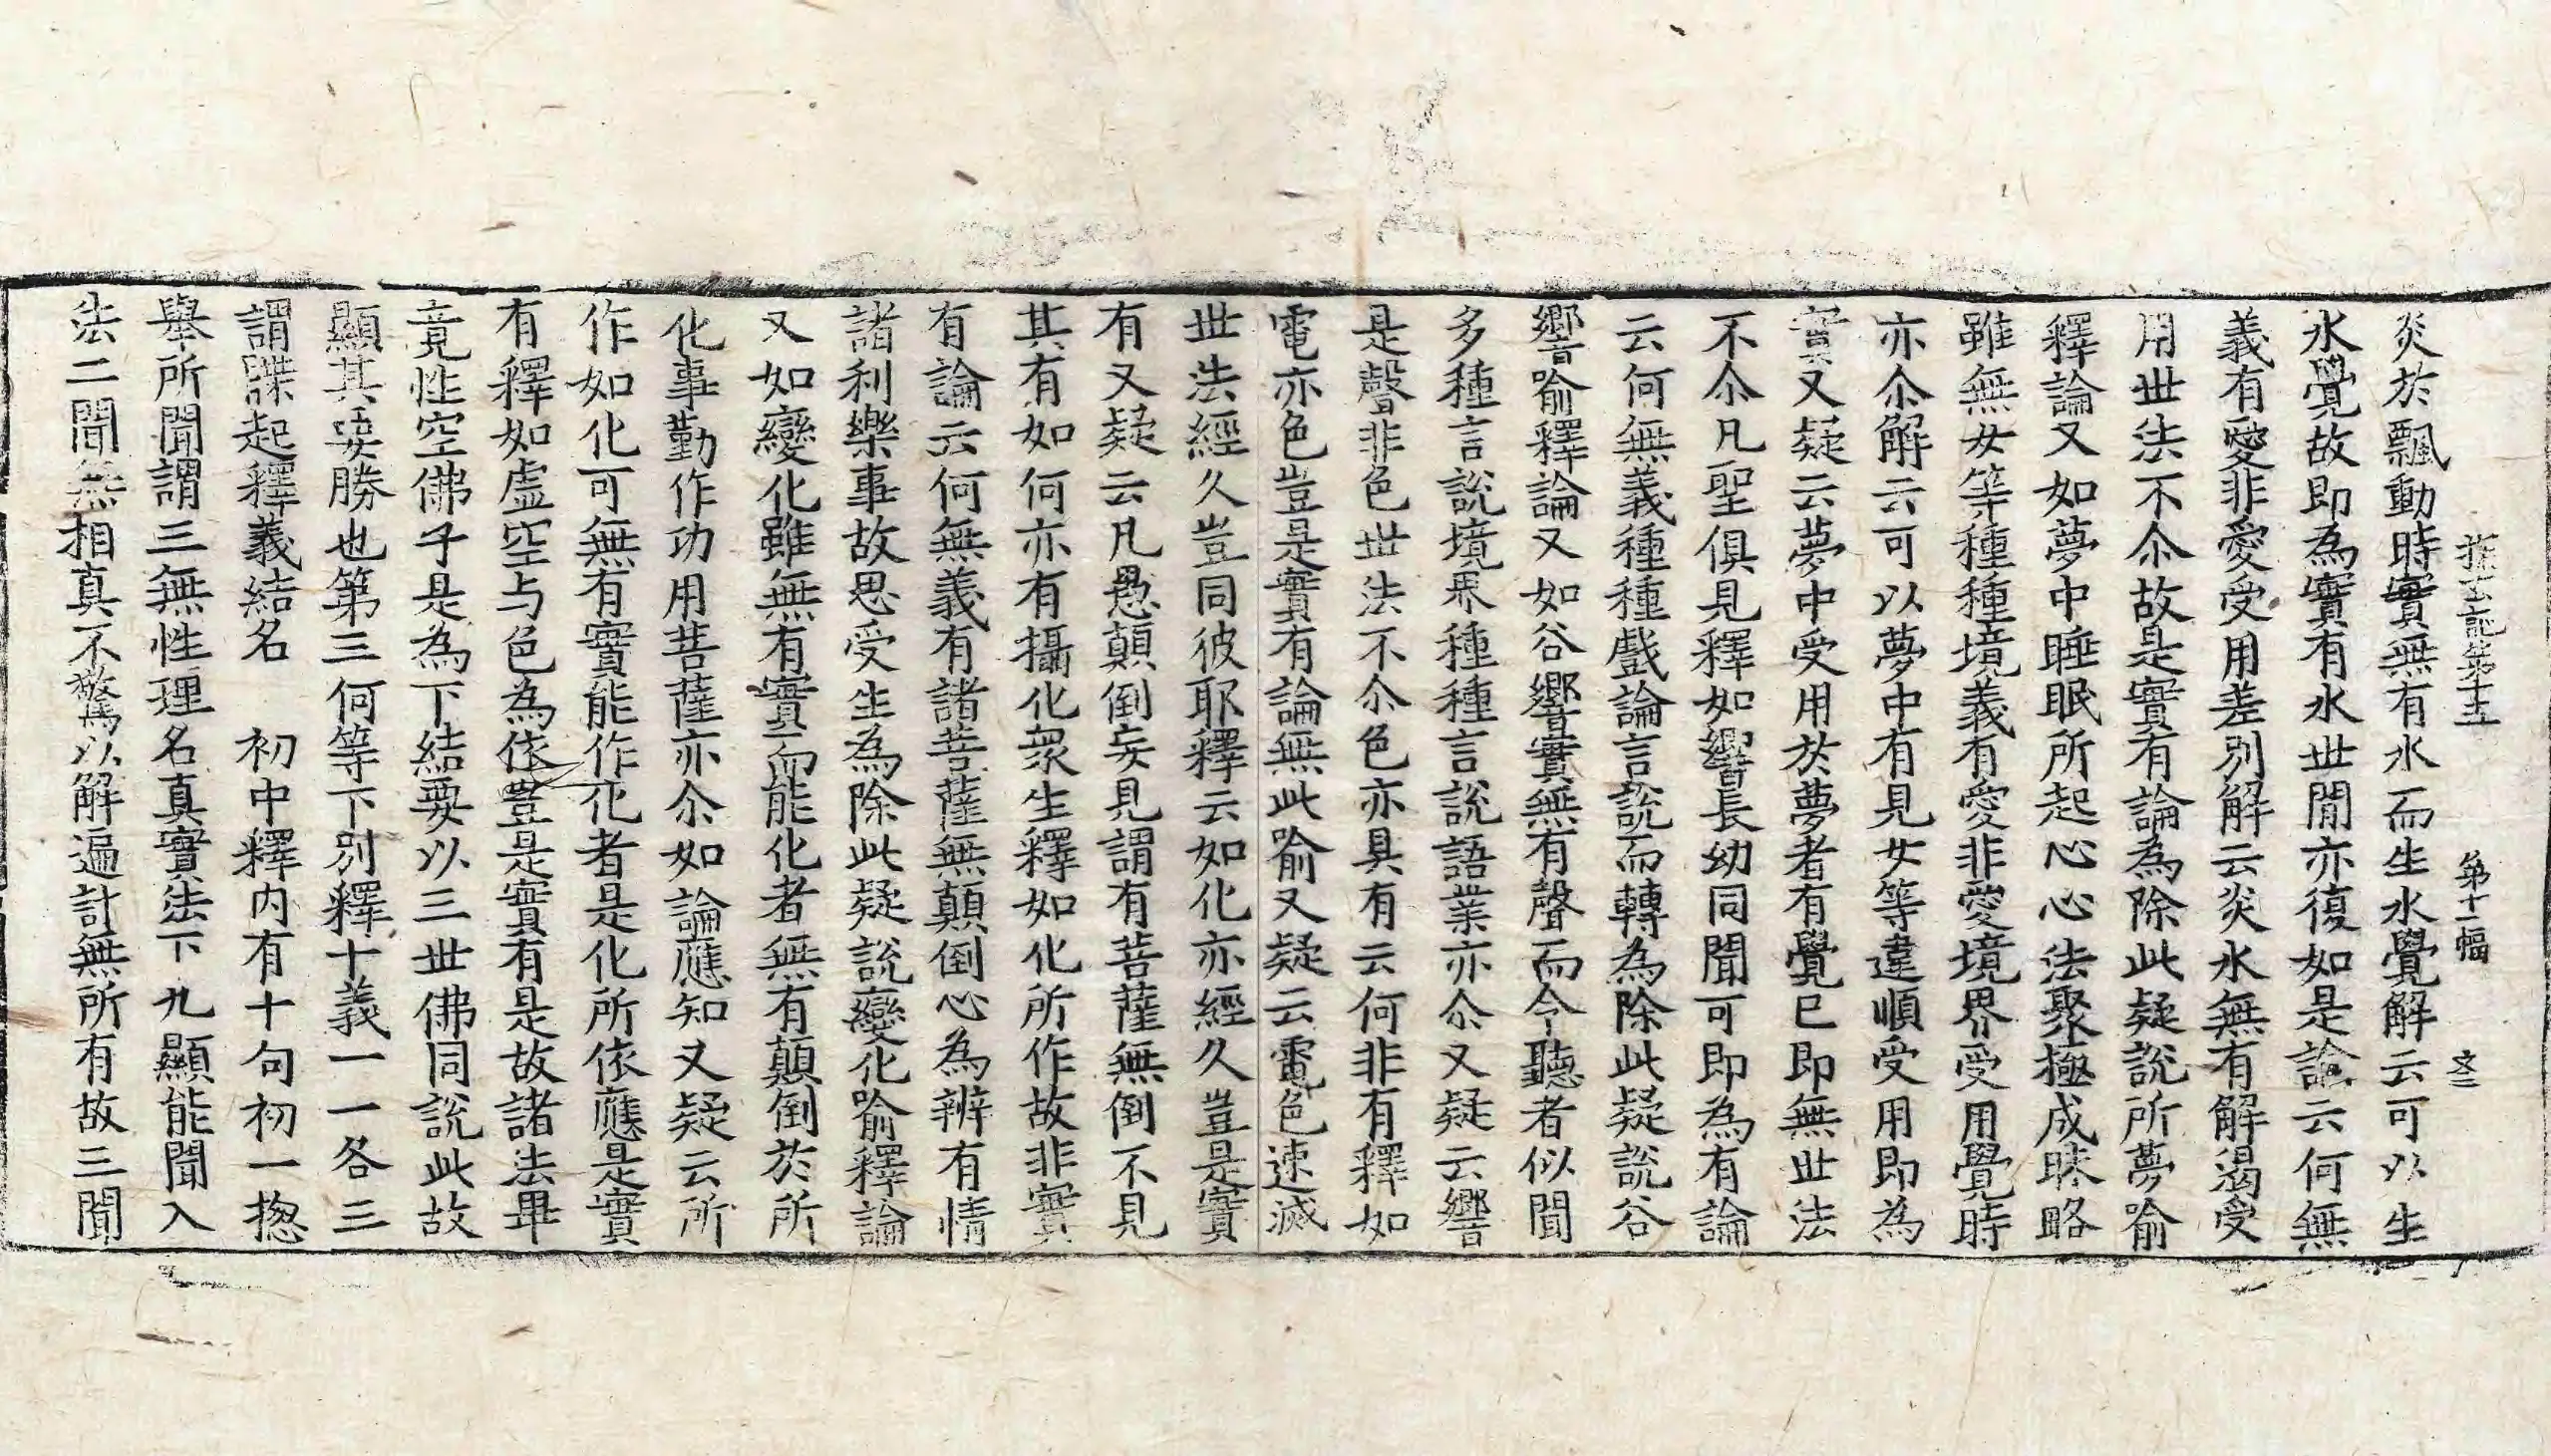 探玄記第十五 第十一幅 文二
炎於飄動時實無有水而生水覺解云可以生
水覺故即為實有水世間亦復如是論云何無
義有愛非愛受用差別解云炎水無有解渴受
用世法不尒故是實有論為除此疑說所夢喻
釋論又如夢中睡眠所起心心法聚極成昧略
雖無女等種種境義有愛非愛境界受用覺時
亦尒解云可以夢中有見女等違順受用即為
實又疑云夢中受用於夢者有覺已即無世法
不尒凡聖俱見釋如響長幼同聞可即為有論
云何無義種種戲論言說而轉為除此疑說谷
響喻釋論又如谷響實無有聲而令聽者似聞
多種言說境界種種言說語業亦尒又疑云響
是聲非色世法不尒色亦具有云何非有釋如
電亦色豈是實有論無此喻又疑云電色速滅
世法經久豈同彼耶釋云如化亦經久豈是實
有又疑云凡愚顛倒妄見謂有菩薩無倒不見
其有如何亦有攝化衆生釋如化所作故非實
有論云何無義有諸菩薩無顛倒心為辨有情
諸利樂事故思受生為除此疑說變化喻釋論
又如變化雖無有實而能化者無有顛倒於所
化事勤作功用菩薩亦尒如論應知又疑云所
作如化可無有實能作化者是化所依應是實
有釋如虛空与色為依豈是實有是故諸法畢
竟性空佛子是為下結要以三世佛同說此故
顯其妄勝也第三何等下別釋十義一一各三
謂牒起釋義結名 初中釋內有十句初一揔
舉所聞謂三無性理名真實法下九顯能聞入
法二聞無相真不驚以解遍計無所有故三聞